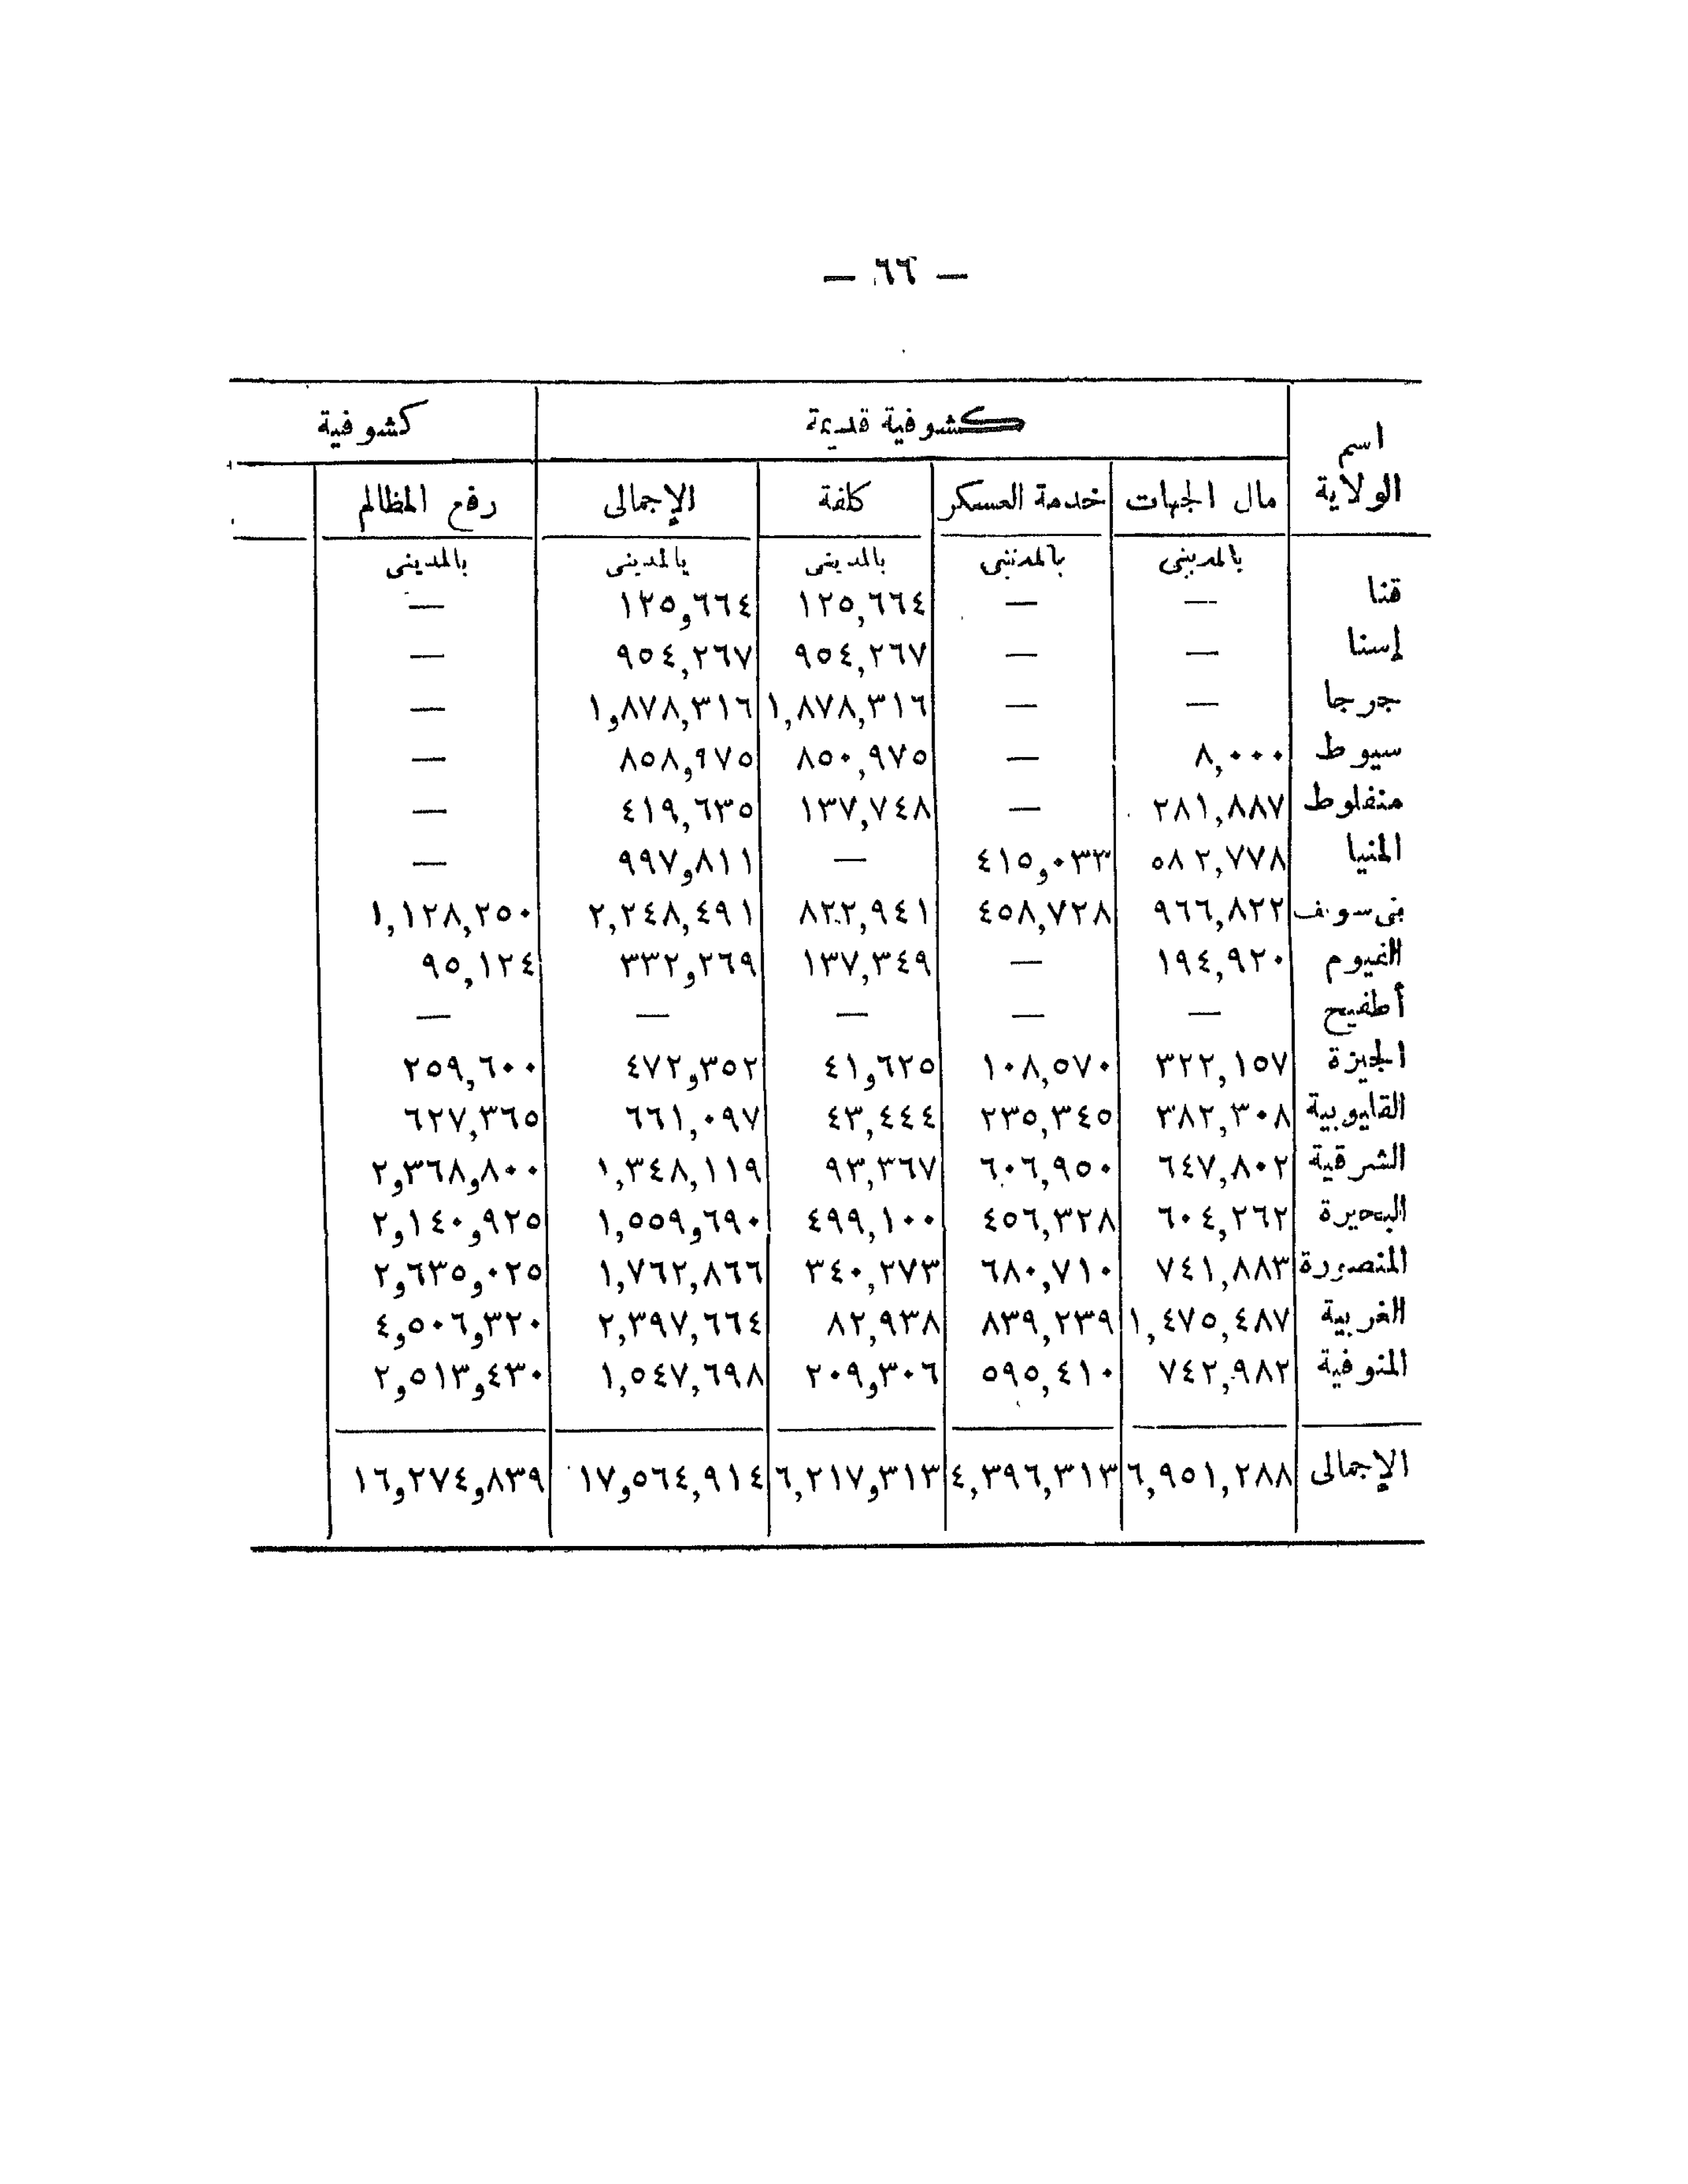 — ٦٦ —
اسم الولاية | كشوفية قديمة | كشوفية
مال الجهات | خدمة العسكر | كلفة | الإجمالى | رفع المظالم
بالمدينى | بالمدينى | بالمدينى | بالمدينى | بالمدينى
قنا | — | — | ١٢٥,٦٦٤ | ١٢٥,٦٦٤ | —
إسنا | — | — | ٩٥٤,٢٦٧ | ٩٥٤,٢٦٧ | —
جرجا | — | — | ١,٨٧٨,٣١٦ | ١,٨٧٨,٣١٦ | —
سيوط | ٨,٠٠٠ | — | ٨٥٠,٩٧٥ | ٨٥٨,٩٧٥ | —
منفلوط | ٢٨١,٨٨٧ | — | ١٣٧,٧٤٨ | ٤١٩,٦٣٥ | —
المنيا | ٥٨٢,٧٧٨ | ٤١٥,٠٣٣ | — | ٩٩٧,٨١١ | —
بنى سويف | ٩٦٦,٨٢٢ | ٤٥٨,٧٢٨ | ٨٢٢,٩٤١ | ٢,٢٤٨,٤٩١ | ١,١٢٨,٢٥٠
الفيوم | ١٩٤,٩٢٠ | — | ١٣٧,٣٤٩ | ٣٣٢,٢٦٩ | ٩٥,١٢٤
أطفيح | — | — | — | — | —
الجيزة | ٣٢٢,١٥٧ | ١٠٨,٥٧٠ | ٤١,٦٢٥ | ٤٧٢,٣٥٢ | ٢٥٩,٦٠٠
القليوبية | ٣٨٢,٣٠٨ | ٢٣٥,٣٤٥ | ٤٣,٤٤٤ | ٦٦١,٠٩٧ | ٦٢٧,٣٦٥
الشرقية | ٦٤٧,٨٠٢ | ٦٠٦,٩٥٠ | ٩٣,٣٦٧ | ١,٣٤٨,١١٩ | ٢,٣٦٨,٨٠٠
البحيرة | ٦٠٤,٢٦٢ | ٤٥٦,٣٢٨ | ٤٩٩,١٠٠ | ١,٥٥٩,٦٩٠ | ٢,١٤٠,٩٢٥
المنصورة | ٧٤١,٨٨٣ | ٦٨٠,٧١٠ | ٣٤٠,٢٧٣ | ١,٧٦٢,٨٦٦ | ٢,٦٣٥,٠٢٥
الغربية | ١,٤٧٥,٤٨٧ | ٨٣٩,٢٣٩ | ٨٢,٩٣٨ | ٢,٣٩٧,٦٦٤ | ٤,٥٠٦,٣٢٠
المنوفية | ٧٤٢,٩٨٢ | ٥٩٥,٤١٠ | ٢٠٩,٣٠٦ | ١,٥٤٧,٦٩٨ | ٢,٥١٣,٤٣٠
الإجمالى | ٦,٩٥١,٢٨٨ | ٤,٣٩٦,٣١٣ | ٦,٢١٧,٣١٣ | ١٧,٥٦٤,٩١٤ | ١٦,٢٧٤,٨٣٩